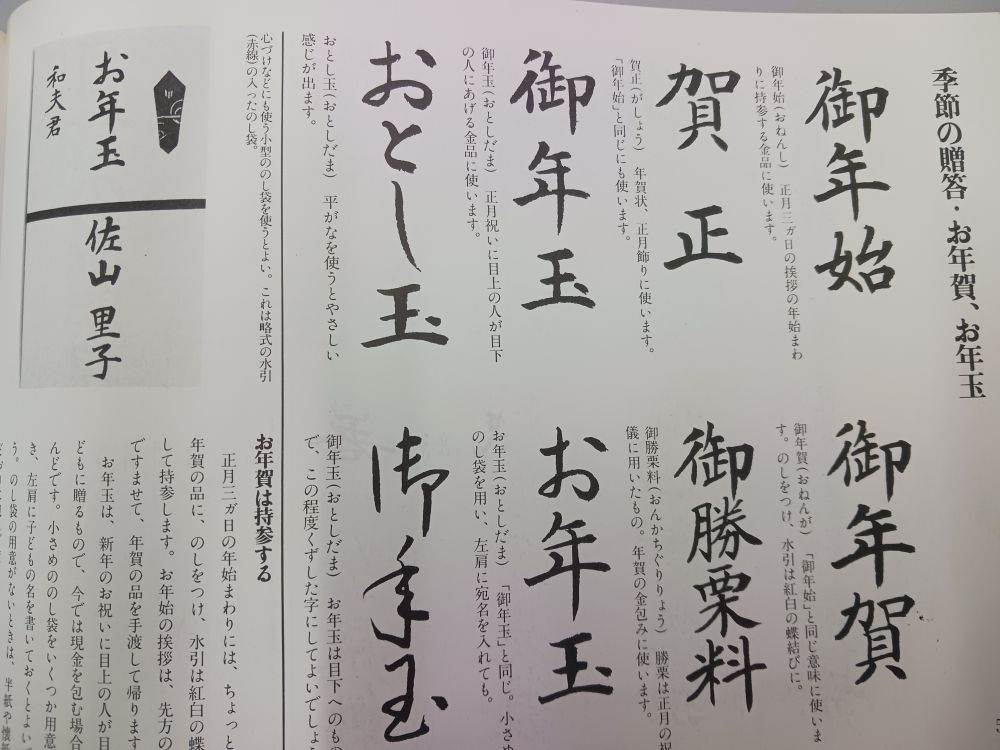 季節の贈答・お年賀、お年玉
御年始
御年始(おねんし)　正月三ガ日の挨拶の年始まわ
りに持参する金品に使います。
賀正
賀正(がしょう)　年賀状、正月飾りに使います。
「御年始」と同じにも使います。
御年玉
御年玉(おとしだま)　正月祝いに目上の人が目下
の人にあげる金品に使います。
おとし玉
おとし玉(おとしだま)　平がなを使うとやさしい
感じが出ます。
御年賀
御年賀(おねんが)　「御年始」と同じ意味に使いま
す。のしをつけ、水引は紅白の蝶結びに。
御勝栗料
御勝栗料(おんかちぐりりょう)　勝栗は正月の祝
儀に用いたもの。年賀の金包みに使います。
お年玉
お年玉(おとしだま)　「御年玉」と同じ。小さめ
のし袋を用い、左肩に宛名を入れても。
御年玉
御年玉(おとしだま)　お年玉は目下へのもの
で、この程度くずした字にしてよいでしょ
心づけなどにも使う小型ののし袋を使うとよい。これは略式の水引
(赤線)の入ったのし袋。
お年玉
和夫君
佐山里子
お年賀は持参する
正月三ガ日の年始まわりには、ちょっと
年賀の品に、のしをつけ、水引は紅白の蝶
して持参します。お年始の挨拶は、先方の
ですませて、年賀の品を手渡して帰ります
お年玉は、新年のお祝いに目上の人が目
どもに贈るもので、今では現金を包む場合
んどです。小さめののし袋をいくつか用意
き、左肩に子どもの名を書いておくとよい
う。のし袋の用意がないときは、半紙や懐紙